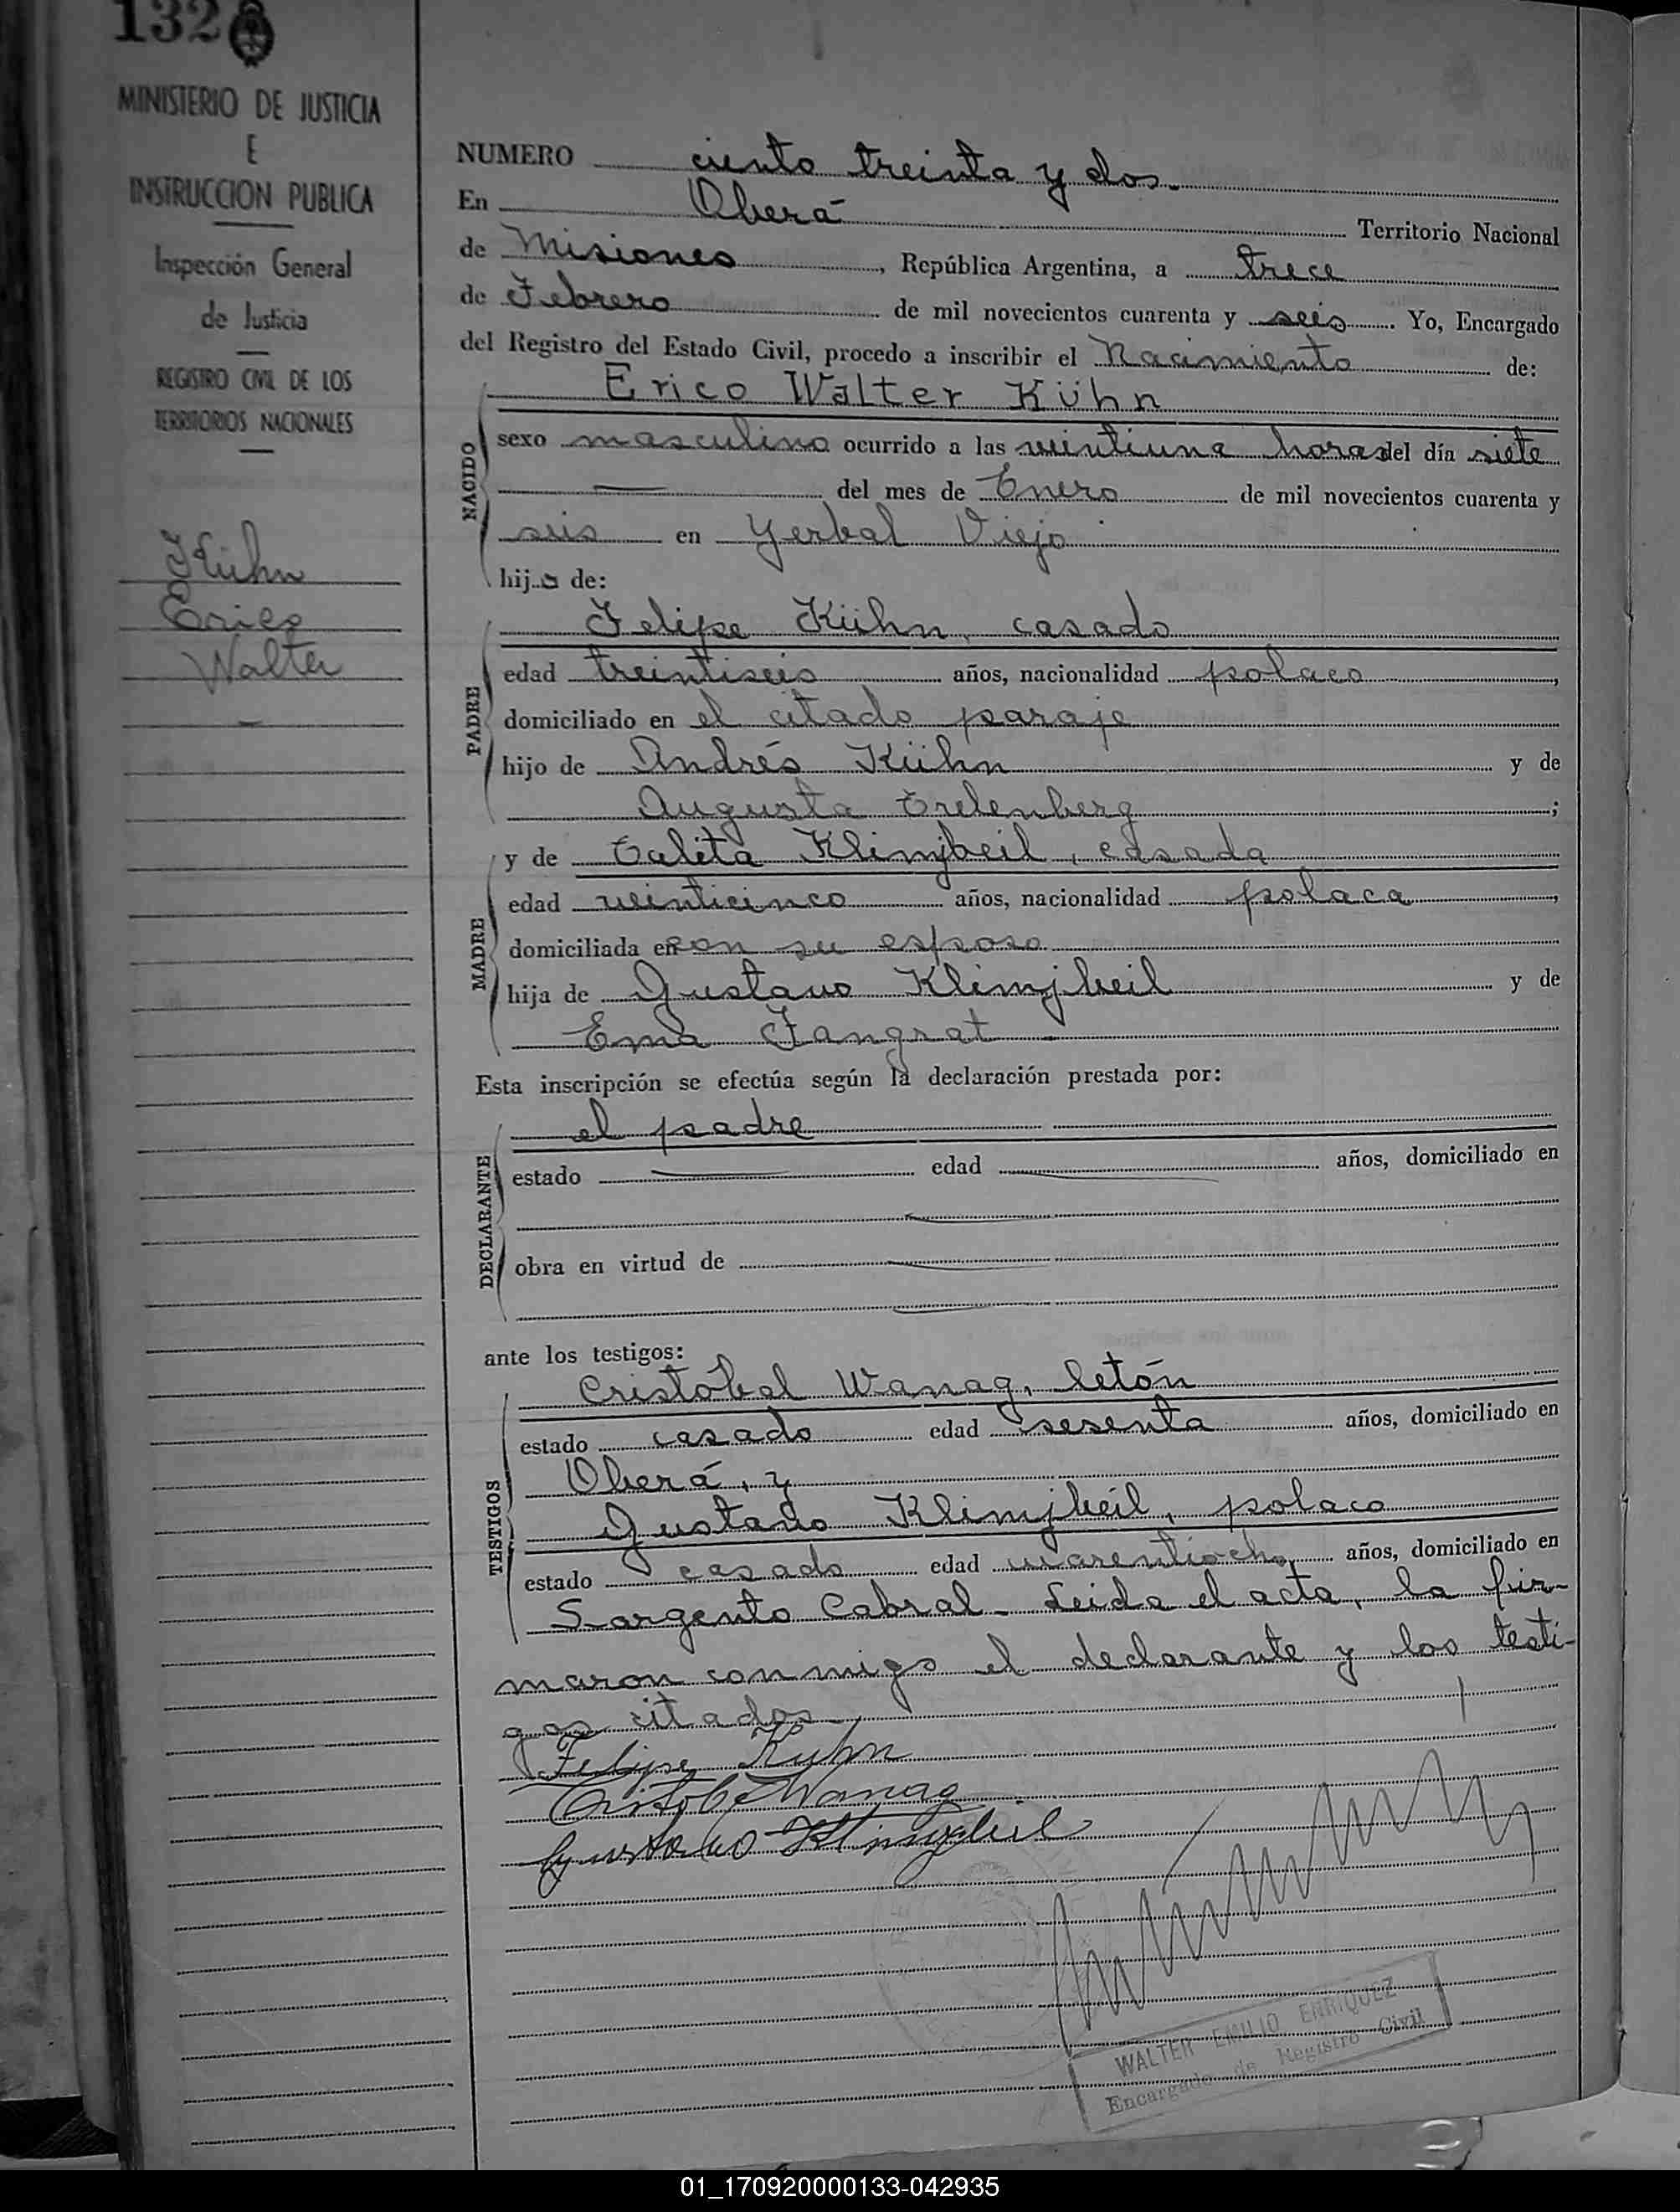 132
MINISTERIO DE JUSTICIA
E
INSTRUCCION PUBLICA
Inspección General
de Justicia
REGISTRO CIVIL DE LOS
TERRITORIOS NACIONALES
Kühn
Erico
Walter
NUMERO ciento treinta y dos-
En Oberá Territorio Nacional
de Misiones, República Argentina, a trece
de Febrero de mil novecientos cuarenta y seis. Yo, Encargado
del Registro del Estado Civil, procedo a inscribir el Nacimiento de:
Erico Walter Kühn
NACIDO
sexo masculino ocurrido a las veintiuna horas del día siete
— del mes de Enero de mil novecientos cuarenta y
seis en Yerbal Viejo
hijo de:
PADRE
Felipe Kühn, casado
edad treintiseis años, nacionalidad polaco,
domiciliado en el citado paraje
hijo de Andrés Kühn y de
Augusta ;
MADRE
y de Klimjbeil, casada
edad veinticinco años, nacionalidad polaca,
domiciliada en con su esposo
hija de Gustavo Klimjbeil y de
Ema Fangrat
Esta inscripción se efectúa según la declaración prestada por:
DECLARANTE
el padre
estado edad años, domiciliado en
obra en virtud de
ante los testigos:
TESTIGOS
Cristóbal Wanag, letón
estado casado edad sesenta años, domiciliado en
Oberá, y
Gustavo Klimjbeil, polaco
estado casado edad cuarentiocho, años, domiciliado en
Sargento Cabral- Leida el acta, la fir-
maron conmigo el declarante y los testi-
gos citados-
Felipe Kuhn
Cristobal Wanag
Gustavo Klimjbeil
WALTER EMILIO ENRIQUEZ
Encargado de Registro Civil
01_170920000133-042935